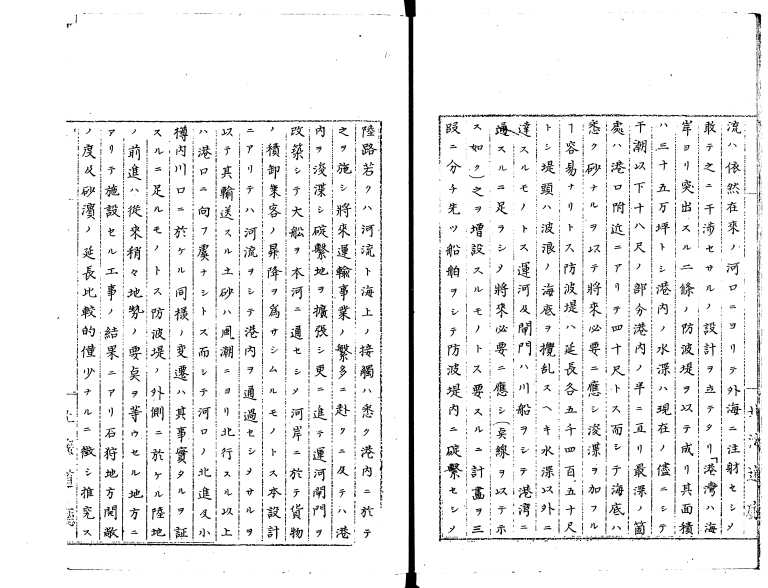 流ハ依然在來ノ河口ニヨリテ外海ニ注射セシメ
敢テ之ニ干渉セサルノ設計ヲ立テタリ「港灣ハ海
岸ヨリ突出スル二條ノ防波堤ヲ以テ成リ其面積
ハ三十五万坪トシ港内ノ水深ハ現在ノ儘ニシテ
干潮以下十八尺ノ部分港内ノ半ニ亘リ最深ノ箇
處ハ港口附近ニアリテ四十尺トス而シテ海底ハ
悉ク砂ナルヲ以テ將來必要ニ應シ浚渫ヲ加フル
ー容易ナリトス防波堤ハ延長各五千四百五十尺
トシ堤頭ハ波浪ノ海底ヲ攪乱スヘキ水深以外ニ
達スルモノトス運河及閘門ハ川船ヲシテ港灣ニ
通スルニ足ラシメ將來必要ニ應シ(点線ヲ以テ示
ス如ク)之ヲ増設スルモノトス要スルニ計畫ヲ三
段ニ分チ先ツ船舶ヲシテ防波堤内ニ碇繋セシメ
陸路若クハ河流ト海上ノ接觸ハ悉ク港内ニ於テ
之ヲ施シ將來運輸事業ノ繁多ニ赴クニ及テハ港
内ヲ浚渫シ碇繋地ヲ擴張シ更ニ進テ運河閘門ヲ
改築シテ大船ヲ本河ニ通セシメ河岸ニ於テ貨物
ノ積卸集客ノ昇降ヲ爲サシムルモノトス本設計
ニアリテハ河流ヲシテ港内ヲ通過セシメサルヲ
以テ其輸送スル土砂ハ風潮ニヨリ北行スル以上
ハ港口ニ向フ虞ナシトス而シテ河口ノ北進及小
樽内川口ニ於ケル同様ノ変遷ハ其事實タルヲ証
スルニ足ルモノトス防波堤ノ外側ニ於ケル陸地
ノ前進ハ從來稍々地勢ノ要点ヲ等ウセル地方ニ
アリテ施設セル工事ノ結果ニアリ石狩地方開敞
ノ度及砂濱ノ延長比較的僅少ナルニ徴シ推究ス
北海道廳